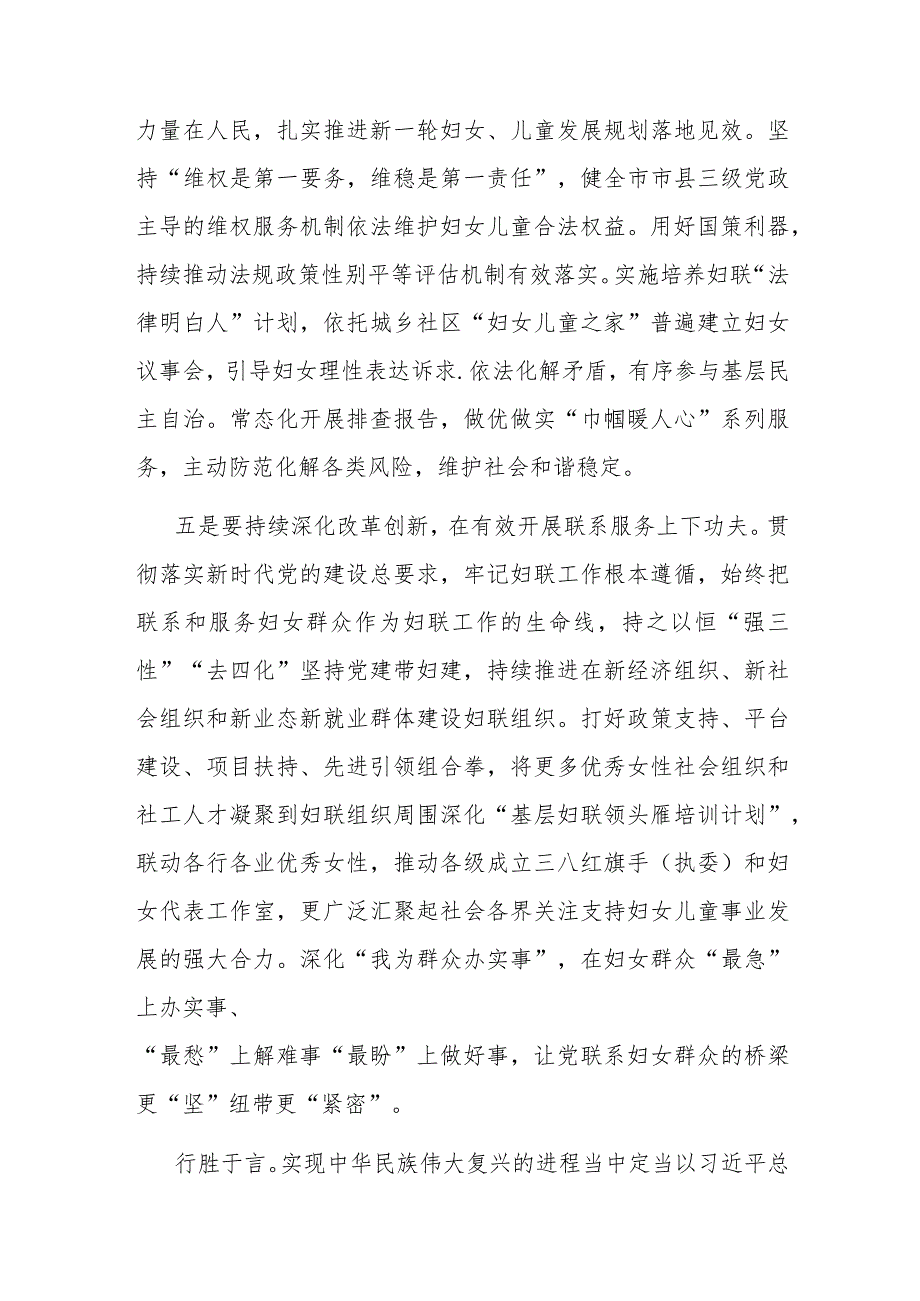 力量在人民，扎实推进新一轮妇女、儿童发展规划落地见效。坚
持“维权是第一要务，维稳是第一责任”，健全市市县三级党政
主导的维权服务机制依法维护妇女儿童合法权益。用好国策利器，
持续推动法规政策性别平等评估机制有效落实。实施培养妇联“法
律明白人”计划，依托城乡社区“妇女儿童之家”普遍建立妇女
议事会，引导妇女理性表达诉求.依法化解矛盾，有序参与基层民
主自治。常态化开展排查报告，做优做实“巾帼暖人心”系列服
务，主动防范化解各类风险，维护社会和谐稳定。
五是要持续深化改革创新，在有效开展联系服务上下功夫。贯
彻落实新时代党的建设总要求，牢记妇联工作根本遵循，始终把
联系和服务妇女群众作为妇联工作的生命线，持之以恒“强三
性”“去四化”坚持党建带妇建，持续推进在新经济组织、新社
会组织和新业态新就业群体建设妇联组织。打好政策支持、平台
建设、项目扶持、先进引领组合拳，将更多优秀女性社会组织和
社工人才凝聚到妇联组织周围深化“基层妇联领头雁培训计划”，
联动各行各业优秀女性，推动各级成立三八红旗手（执委）和妇
女代表工作室，更广泛汇聚起社会各界关注支持妇女儿童事业发
展的强大合力。深化“我为群众办实事”，在妇女群众“最急”
上办实事、
“最愁”上解难事“最盼”上做好事，让党联系妇女群众的桥梁
更“坚”纽带更“紧密”。
行胜于言。实现中华民族伟大复兴的进程当中定当以习近平总